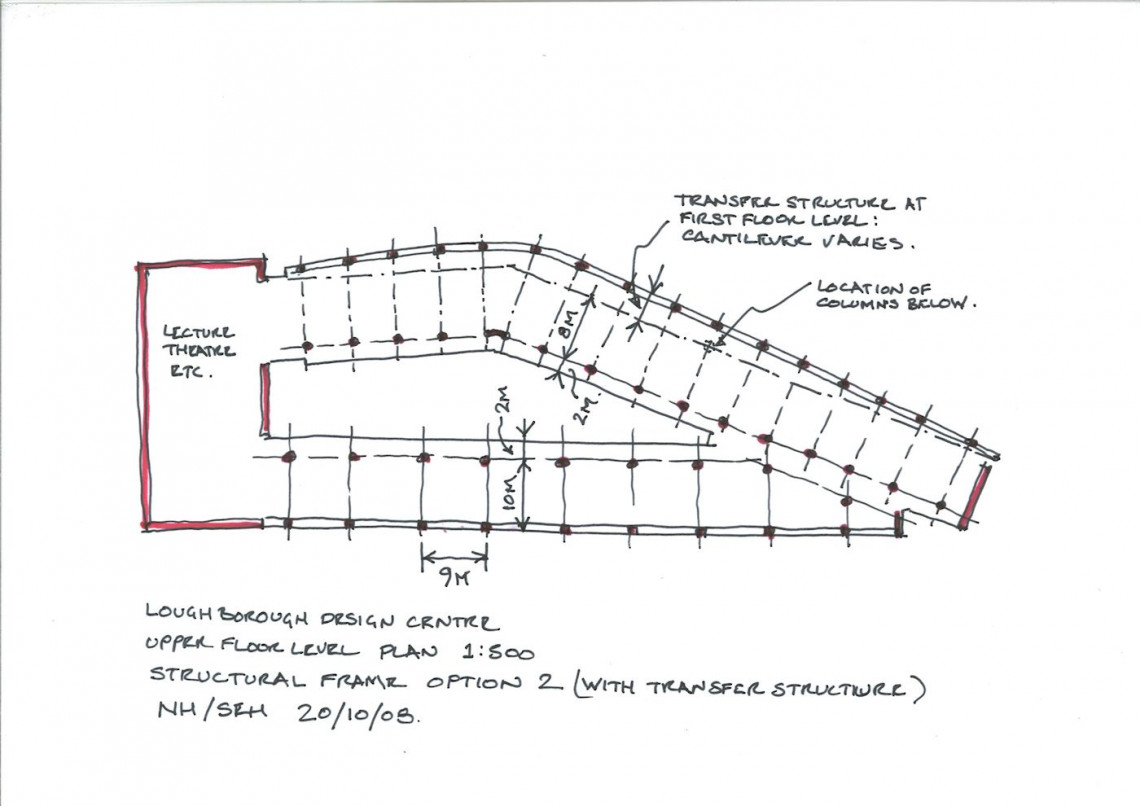 TRANSFER STRUCTURE AT
FIRST FLOOR LEVEL:
CANTILEVER VARIES.
LOCATION OF
COLUMNS BELOW.
LECTURE
THEATRE
ETC.
8M
2M.
2M
10M
9M
LOUGHBOROUGH DESIGN CENTRE
UPPER FLOOR LEVEL PLAN 1:500
STRUCTURAL FRAME OPTION 2 (WITH TRANSFER STRUCTIURE)
NH/SEH 20/10/08.